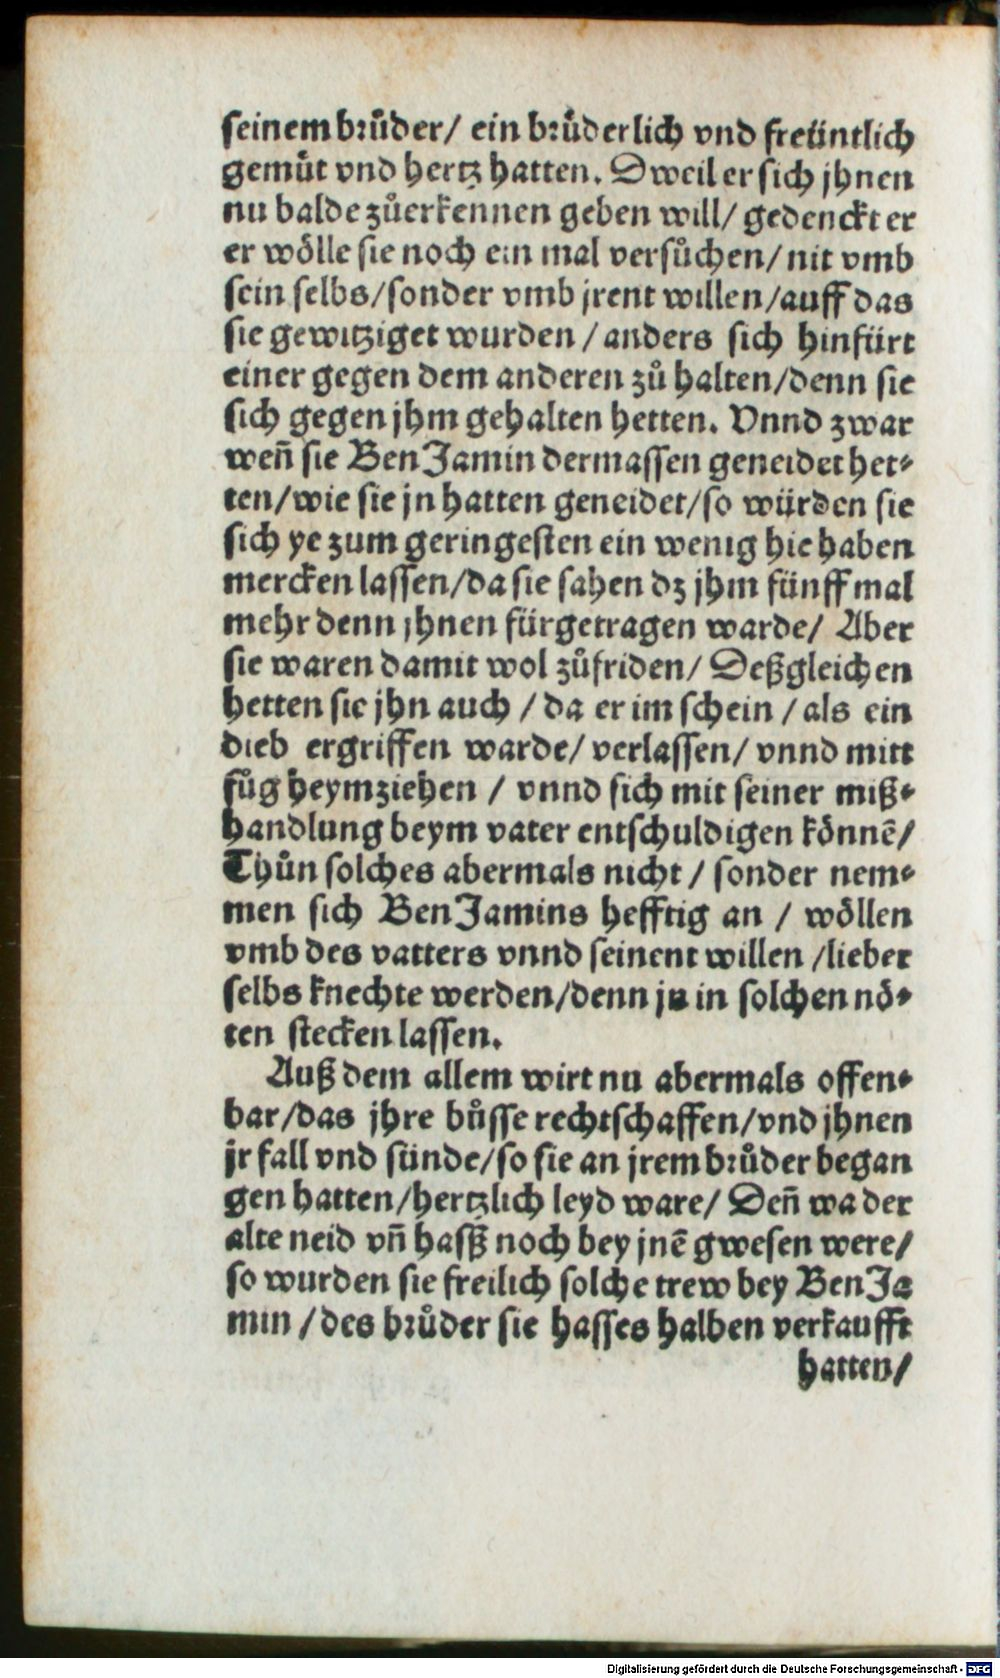 seinem brůder/ ein brůderlich vnd freüntlich
gemüt vnd hertz hatten. Dweil er sich jhnen
nu balde zůerkennen geben will/ gedenckt er
er wölle sie noch ein mal versůchen/ nit vmb
sein selbs/sonder vmb jrent willen/auff das
sie gewitziget wurden / anders sich hinfürt
einer gegen dem anderen zů halten/denn sie
sich gegen jhm gehalten hetten. Vnnd zwar
weñ sie BenJamin dermassen geneidet het⸗
ten/wie sie jn hatten geneidet/so würden sie
sich ye zum geringesten ein wenig hie haben
mercken lassen/da sie sahen dz jhm fünff mal
mehr denn jhnen fürgetragen warde/ Aber
sie waren damit wol zůfriden/ Deßgleichen
hetten sie jhn auch / da er im schein / als ein
dieb ergriffen warde/ verlassen/ vnnd mitt
fůg heymziehen / vnnd sich mit seiner miß⸗
handlung beym vater entschuldigen könnẽ/
Thůn solches abermals nicht / sonder nem⸗
men sich BenJamins hefftig an / wöllen
vmb des vatters vnnd seinent willen /lieber
selbs knechte werden/denn jn in solchen nö⸗
ten stecken lassen.
Auß dem allem wirt nu abermals offen⸗
bar/das jhre bůsse rechtschaffen/vnd jhnen
jr fall vnd sünde/so sie an jrem brůder began
gen hatten/hertzlich leyd ware/ Deñ wa der
alte neid vñ hasß noch bey jnẽ gwesen were/
so wurden sie freilich solche trew bey BenJa
min / des brůder sie hasses halben verkaufft
hatten/
Digitalisierung gefördert durch die Deutsche Forschungsgemeinschaft - DFG